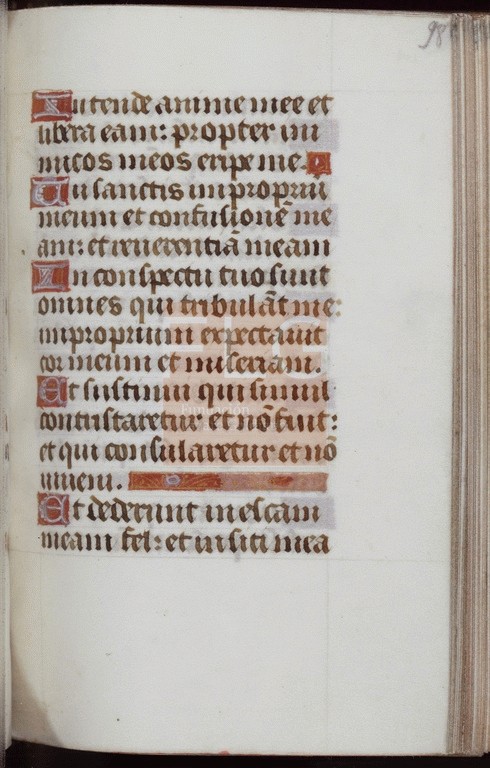 98
Intende anime mee et
libera eam: propter ini
micos meos eripe me.
Tu scis improperiū
meum et confusionē me
am: et reuerentiā meam
In conspectu tuo sunt
omnes qui tribulāt me:
improprium expectauit
cor meum et miseriam.
Et sustinui qui simul
contristaretur et nō fuit:
et qui consularetur et nō
inueni.
Et dederunt in escam
meam fel: et in siti mea